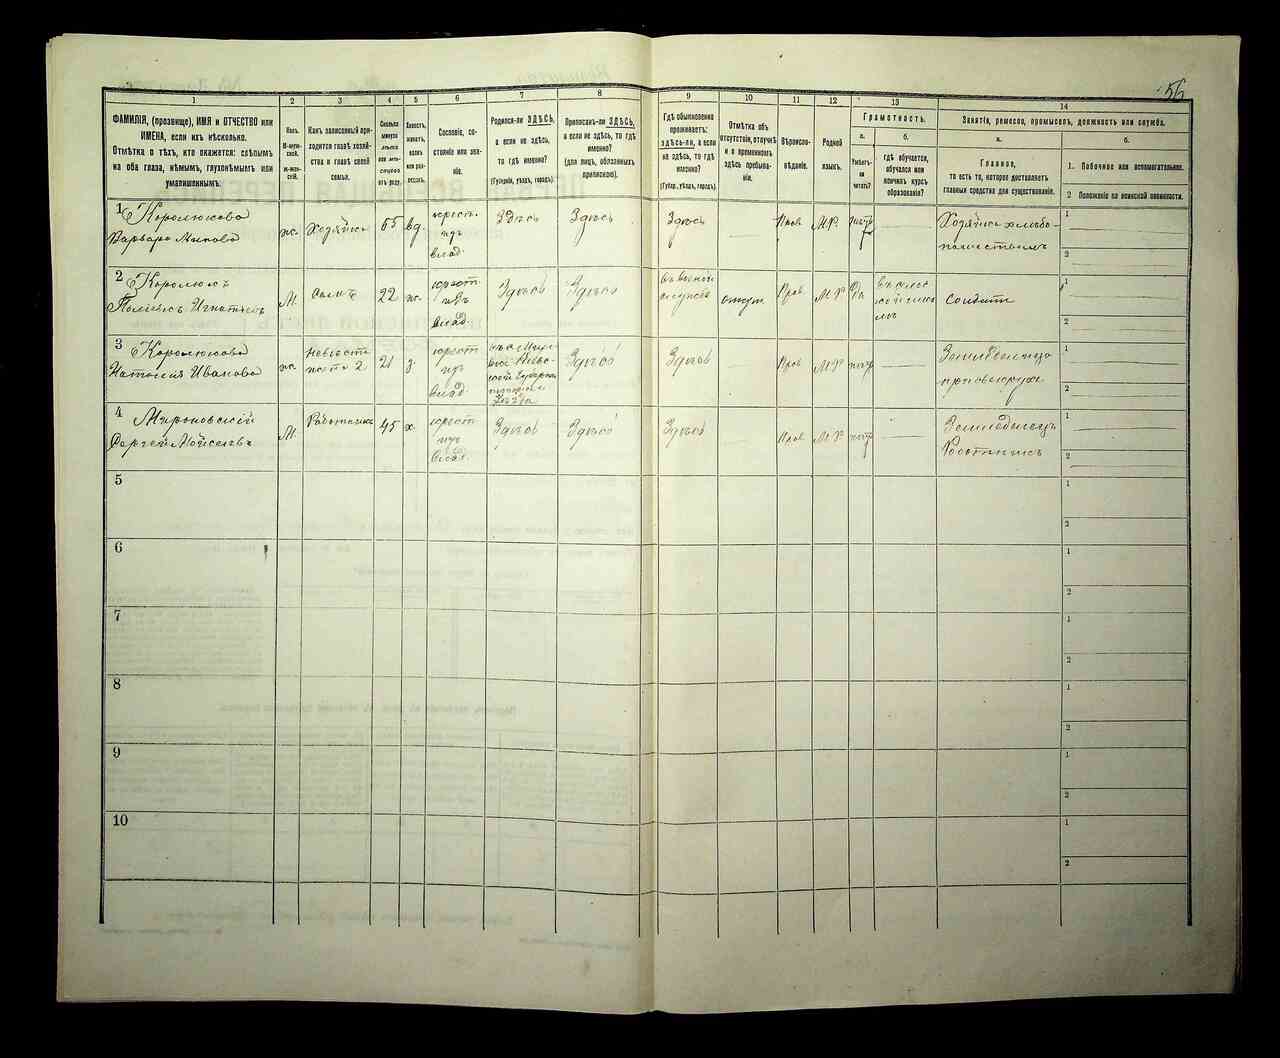 56
1 2 3 4 5 6 7 8 9 10 11 12 13 14
ФАМИЛІЯ, (прозвище), ИМЯ и ОТЧЕСТВО или
ИМЕНА, если ихъ нѣсколько.
Отмѣтка о тѣхъ, кто окажется: слѣпымъ
на оба глаза, нѣмымъ, глухонѣмымъ или
умалишеннымъ.
Полъ.
М-муж-
ской.
Ж-жен-
скій.
Какъ записанный при-
ходится главѣ хозяй-
ства и главѣ своей
семьи.
Сколько
минуло
лѣтъ
Сословіе, со-
стояніе или зва-
ніе.
Родился-ли ЗДѢСЬ,
а если не здѣсь,
то гдѣ именно?
(Губернія, уѣздъ, городъ).
Приписанъ-ли ЗДѢСЬ,
а если не здѣсь, то гдѣ
именно?
(для лицъ, обязанныхъ
припискою).
Гдѣ обыкновенно
проживаетъ:
здѣсь-ли, а если
не здѣсь, то гдѣ
именно?
(Губер., уѣздъ, городъ).
Отмѣтка объ
отсутствіи, отлучкѣ
и о временномъ
здѣсь пребыва-
ніи.
Вѣроиспо-
вѣданіе.
Родной
языкъ.
Грамотность.
а.
Умѣетъ-
ли
читать?
б.
гдѣ обучается,
обучался или
кончилъ курсъ
образованія?
Занятіе, ремесло, промыселъ, должность или служба.
а.
Главное,
то есть то, которое доставляетъ
главныя средства для существованія.
б.
1. Побочное или вспомогательное.
2 Положеніе по воинской повинности.
1 Королюкова
Варвара
ж. Хозяйка 65 вд. крест.
изъ
влад.
Здѣсь Здѣсь Здѣсь Прав М.Р. нѣтъ
Хозяйка хлѣбо-
пашествомъ
1
2
2 Королюкъ
Игнатьевъ
М. Сынъ 22 ж. крест
изъ
влад.
Здѣсь Здѣсь
отсут Прав М.Р. Да
солдатъ
1
2
3 Королюкова
Наталія Иванова
ж. Невѣстка
21 з. крест
изъ
влад.
Здѣсь Здѣсь Прав М.Р. нѣтъ
1
2
4 Мироновскій
Сергей Мойсеевъ
М. Работникъ 45 х. крест
изъ
влад.
Здѣсь Здѣсь Здѣсь Прав М.Р. нѣтъ
Земледелецъ
Работникъ
1
2
5
1
2
6
1
2
7
1
2
8
1
2
9
1
2
10
1
2